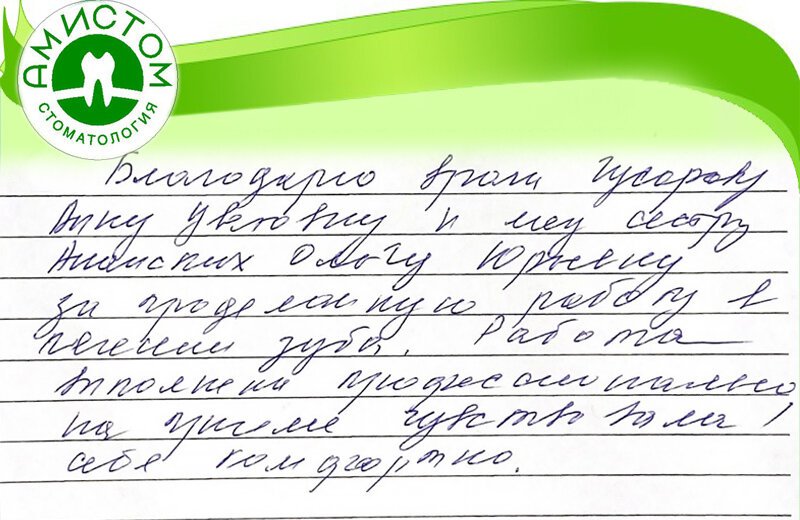 АМИСТОМ
СТОМАТОЛОГИЯ
Благодарю врача Гусарову
Анну и мед сестру
Ольгу Юрьевну
за проделанную работу в
лечении зуба. Работа
выполнена профессионально
на приеме чувствовала
себя комфортно.